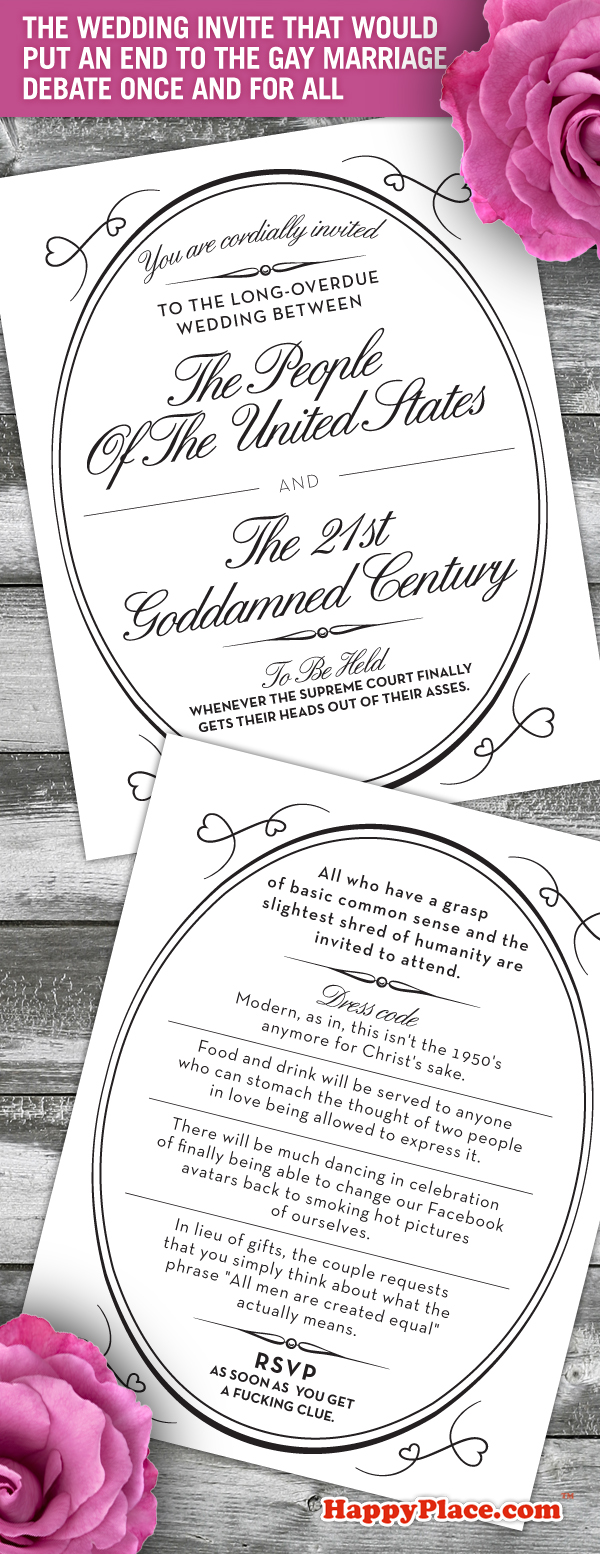 THE WEDDING INVITE THAT WOULD
PUT AN END TO THE GAY MARRIAGE
DEBATE ONCE AND FOR ALL
You are cordially invited
TO THE LONG-OVERDUE
WEDDING BETWEEN
The People
Of The United States
AND
The 21st
Goddamned Century
To Be Held
WHENEVER THE SUPREME COURT FINALLY
GETS THEIR HEADS OUT OF THEIR ASSES.
All who have a grasp
of basic common sense and the
slightest shred of humanity are
invited to attend.
Dress code
Modern, as in, this isn't the 1950's
anymore for Christ's sake.
Food and drink will be served to anyone
who can stomach the thought of two people
in love being allowed to express it.
There will be much dancing in celebration
of finally being able to change our Facebook
avatars back to smoking hot pictures
of ourselves.
In lieu of gifts, the couple requests
that you simply think about what the
phrase "All men are created equal"
actually means.
RSVP
AS SOON AS YOU GET
A FUCKING CLUE.
HappyPlace.com™